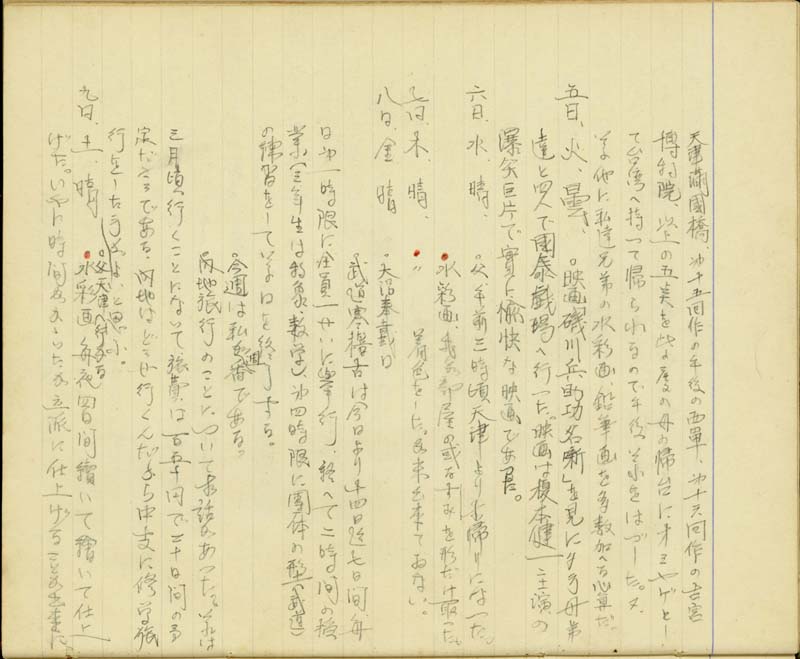 天津萬國橋、第十五回作の午後の西單、第十六回作の古宮
博物院、以上の五美を此の度の母の帰台にオミヤゲとし
て台湾へ持って帰られるので午後、それをはづした。又、
その他に私達兄弟の水彩画、鉛筆画を多数加へる心算だ。
五日、火、曇、 。映画「磯川兵助功名噺」を見に 母弟
達と四人で國泰戯場へ行った。映画は榎本健一主演の
爆笑巨片で實に愉快な映画であった。
六日、水、晴、 。父、午前三時頃天津よりお帰りになった。
・水彩画、我が部屋の或るすみを形だけ取った。
七日、木、晴、 ・〃 着色をした。未だ出来てゐない。
八日、金、晴 。大詔奉戴日
。武道寒稽古は今日より二十四日迄七日間毎
日第一時限に全員一せいに挙行、終へて二時間の授
業(三年生は物象、数学)、第四時限に團体の型(武道)
の練習をしている日を終りする。
。今週は私が週番である。
内地旅行のことについてお話があった。それは
三月頃行くことになって旅費は百五十円で二十日間の予
定だそうである。内地はどうせ行くんだから中支に修学旅
行をした方がよいと思ふ。
。父、天津へ行かる
九日、土、晴、 ・水彩画 毎夜四日間續いて繪いて仕上
げた。いやに時間がかゝったが立派に仕上げることが出来た。